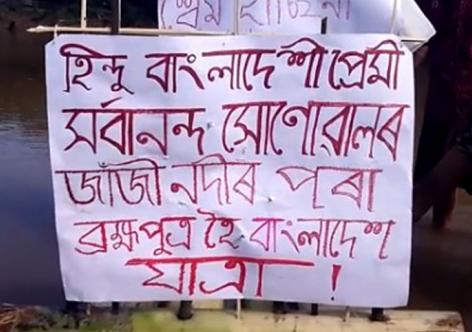 হিন্দু বাংলাদেশী প্ৰেমী
সৰ্বানন্দ সোণোৱালৰ
জাঁজী নদীৰ পৰা
ব্ৰহ্মপুত্ৰ হৈ বাংলাদেশ
যাত্ৰা !